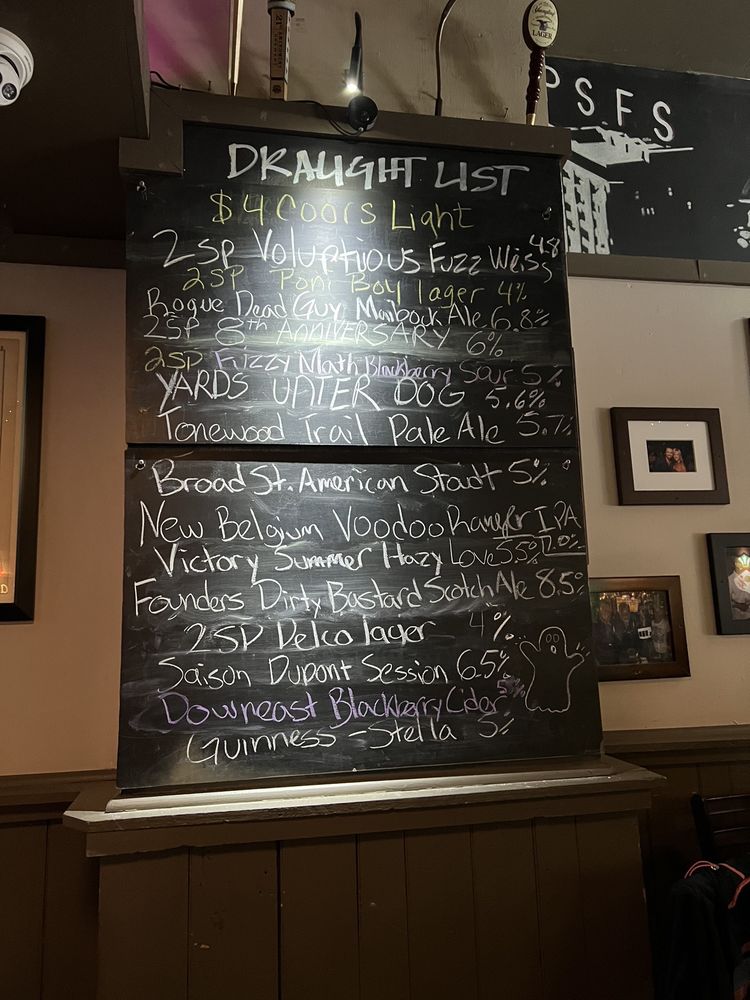 LAGER
PSFS
DRAUGHT LIST
$4 Coors Light
2sp Voluptious Fuzz Weiss 4.8
2SP Poni Boy lager 4%
Rogue Dead Guy Maibock Ale 6.8%
2SP 8th ANNIVERSARY 6%
2SP Fuzzy Math Blackberry Sour 5%
YARDS UNTER DOG 5.6%
Tonewood Trail Pale Ale 5.7%
Broad St. American Stadt 5%
New Belgium Voodoo Ranger IPA
Victory Summer Hazy Love 5.5% 7.0%
Founders Dirty Bastard Scotch Ale 8.5%
2SP Delco lager 4%
Saison Dupont Session 6.5%
Downeast Blackberry Cider 5%
Guinness - Stella 5%